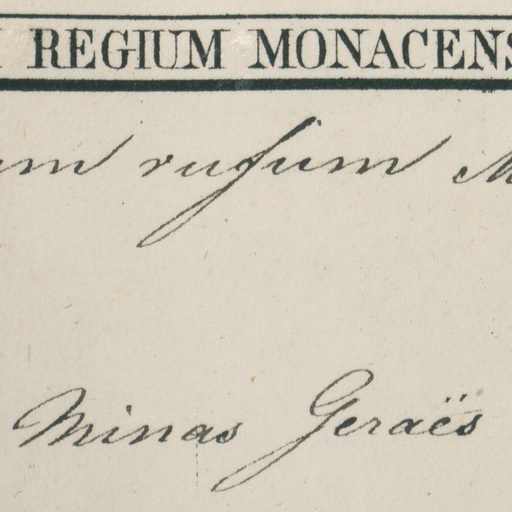 REGIUM MONACENS
um rufum M
Minas Geraës